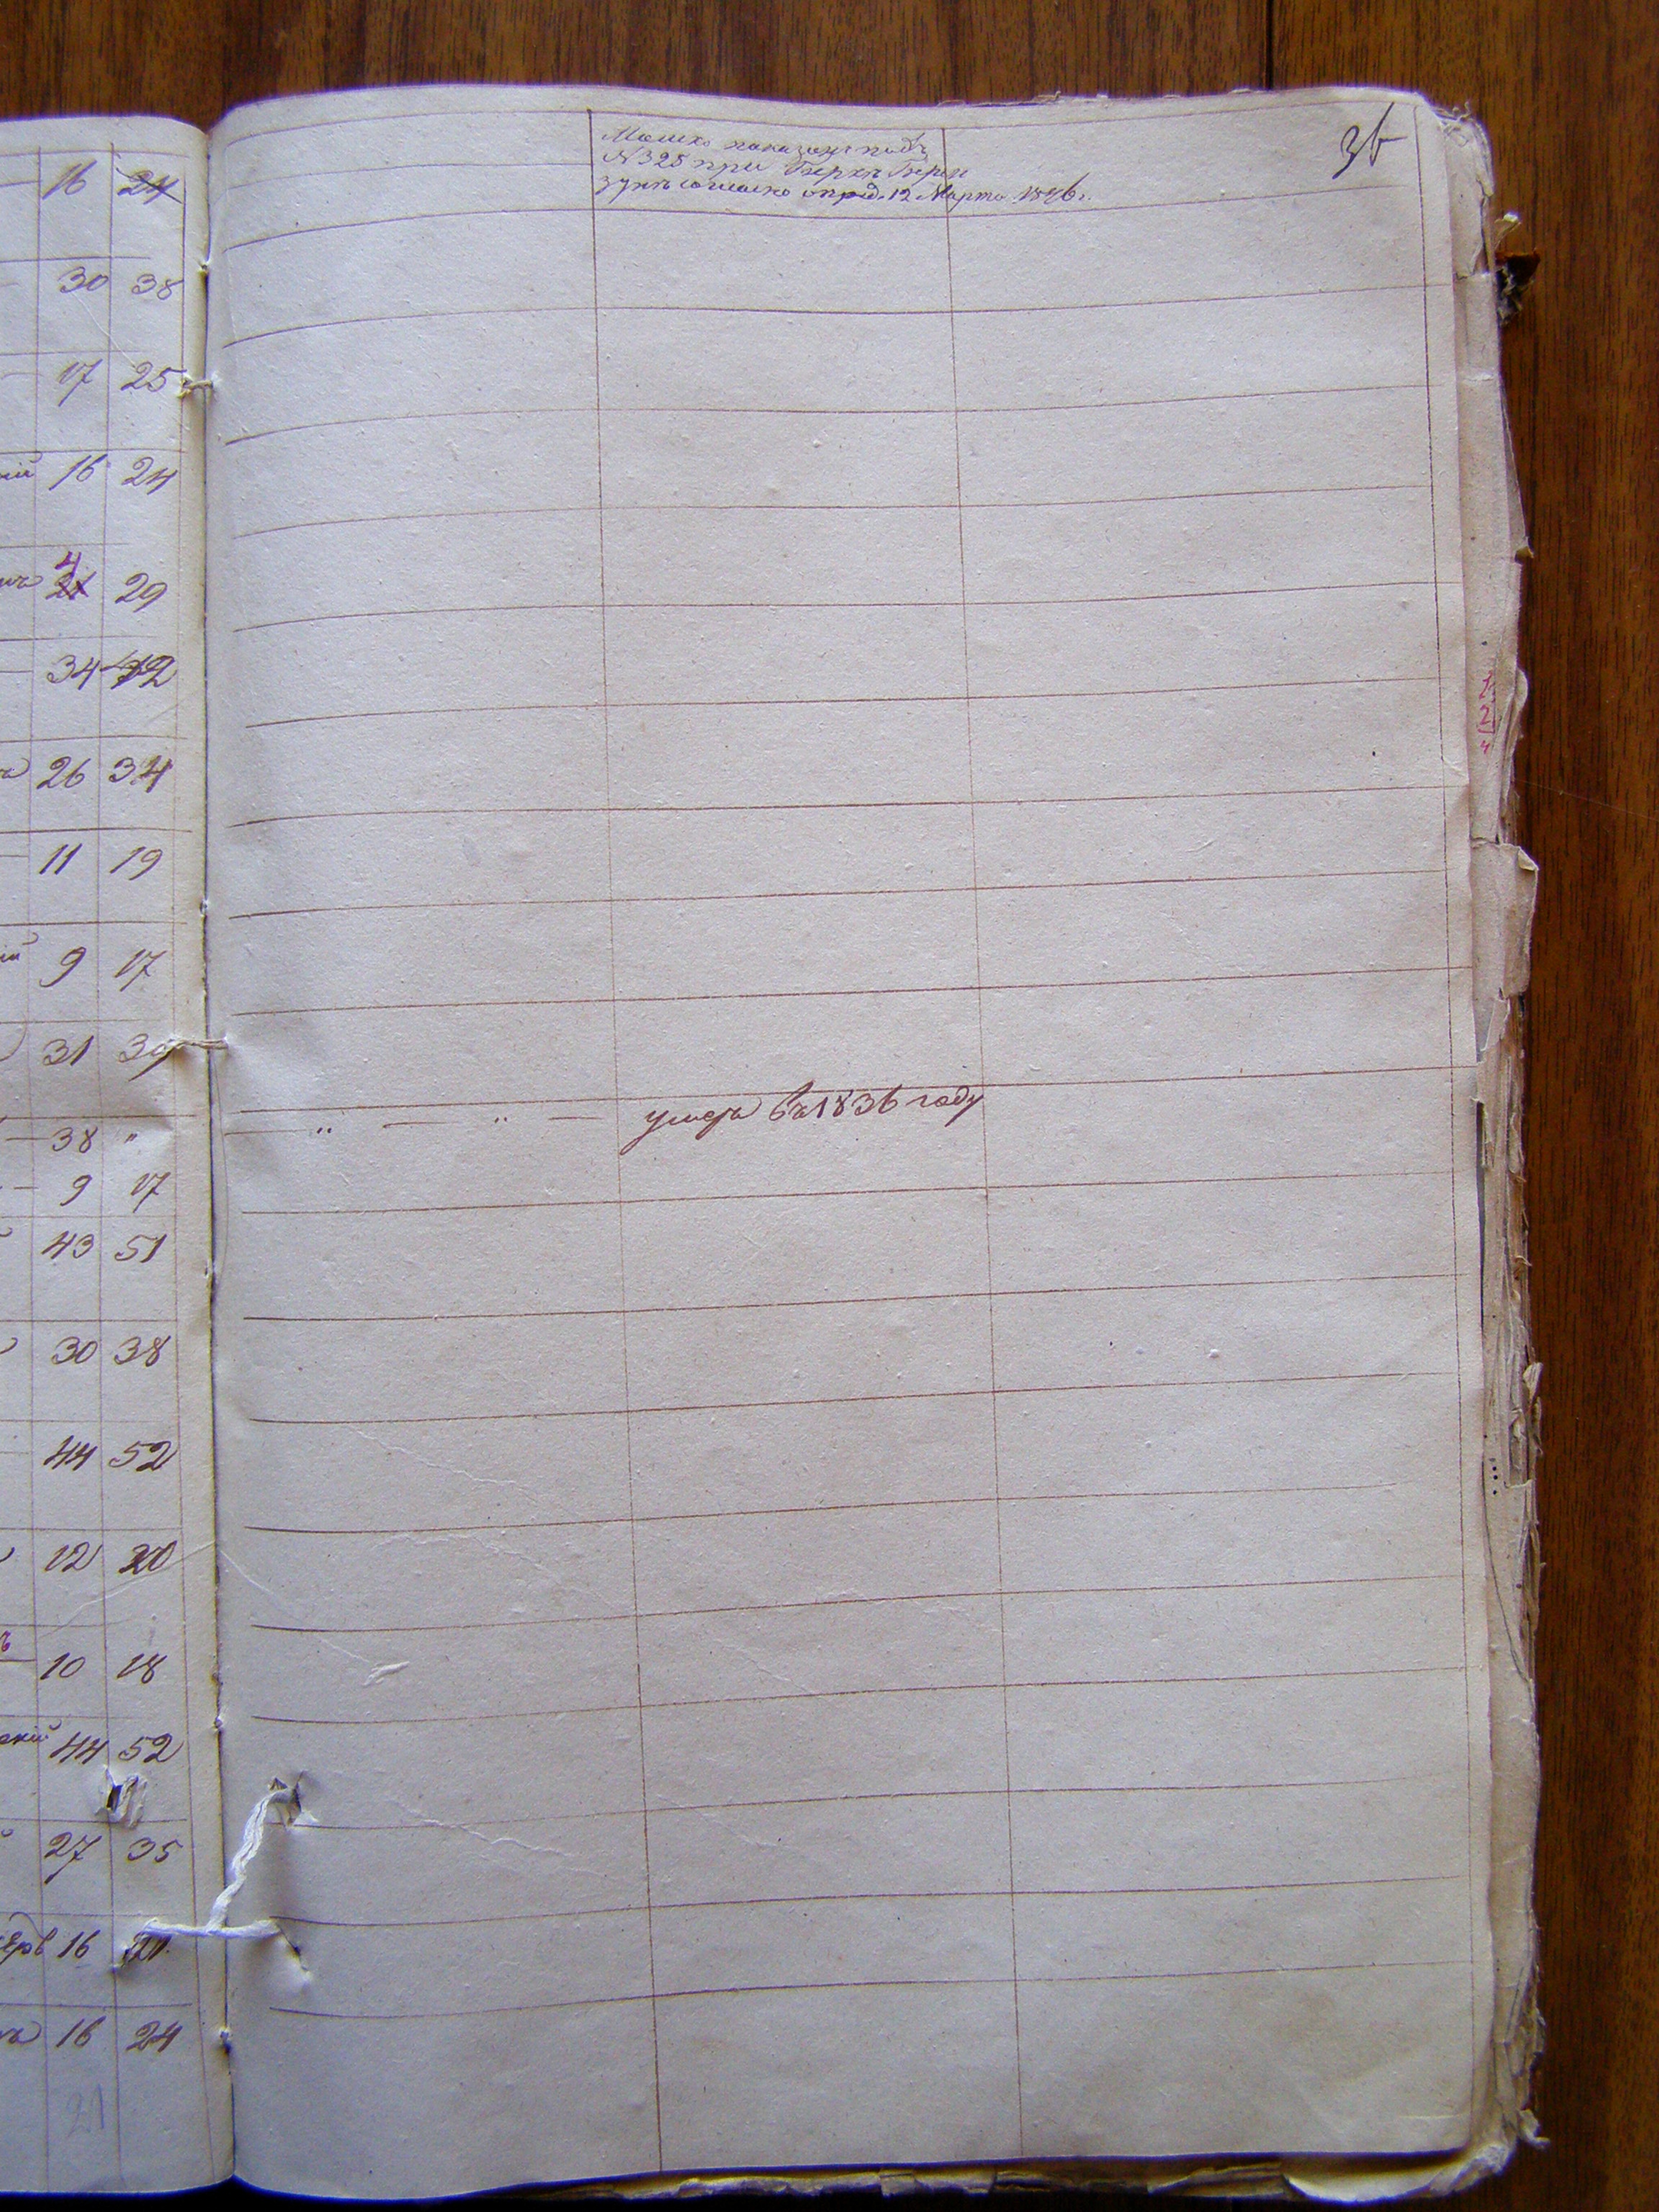 36
Мошко показанъ подъ
№ 325 при Беркѣ Бере
зунъ согласно опред. 12 Марта 1846 г.
16 24
30 38
17 25
кій 16 24
4
ичъ 21 29
34 42
26 34
11 19
ій 9 17
31 39
38 " — " — " — умеръ въ 1836 году
9 17
43 51
30 38
44 52
12 20
10 18
скій 44 52
27 35
16
16 24
21